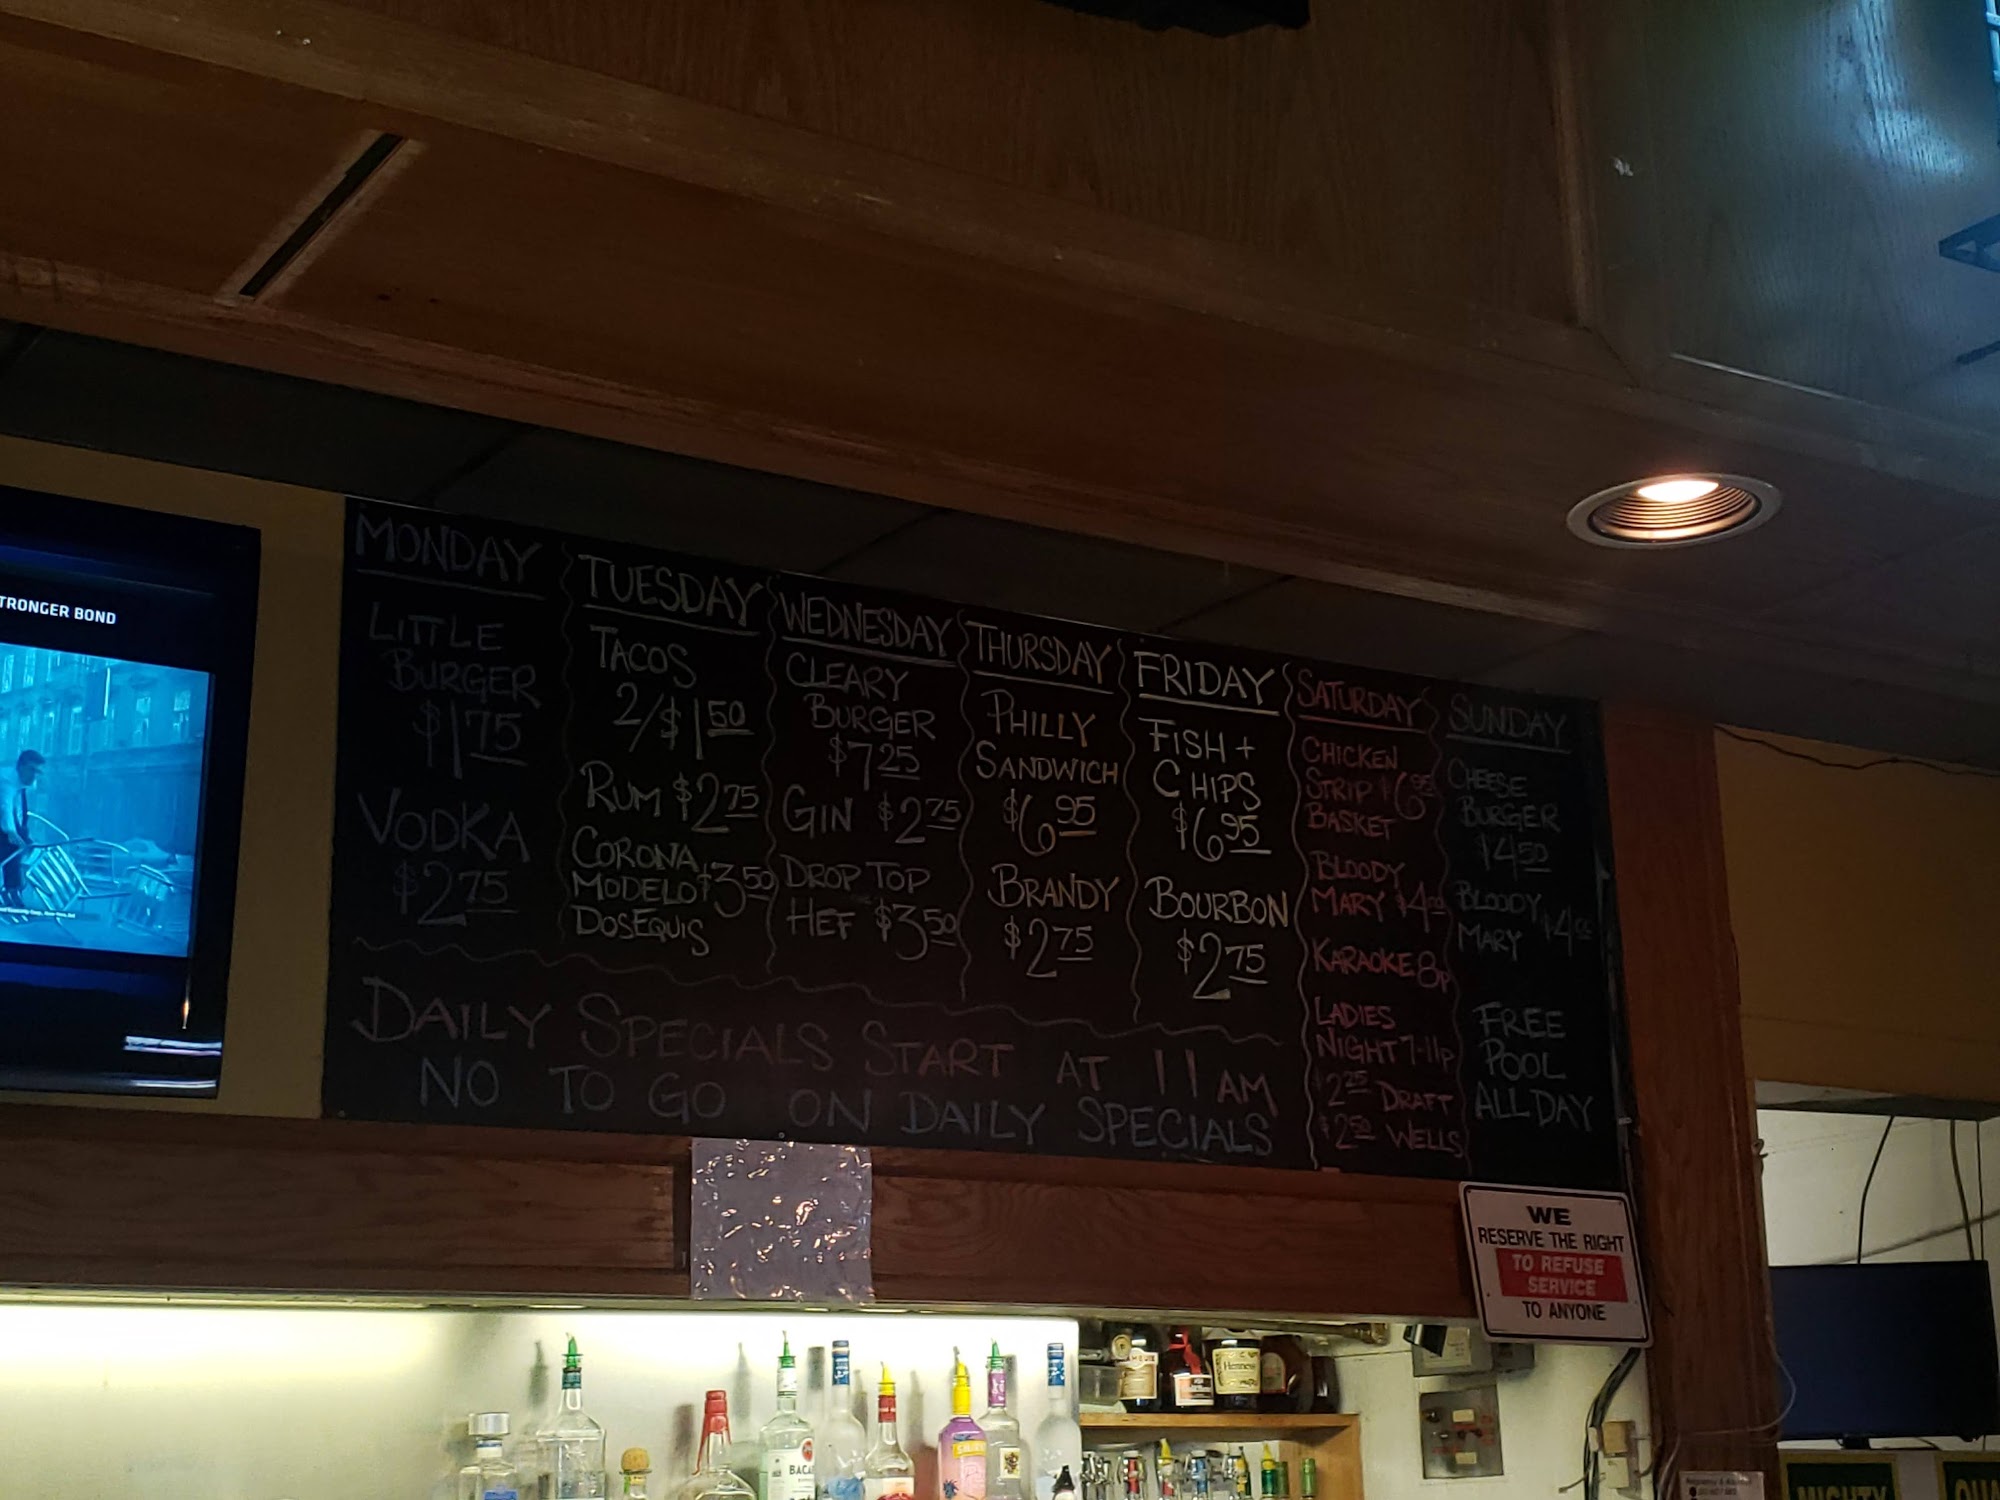 TRONGER BOND
MONDAY
LITTLE
BURGER
$1 75
VODKA
$2 75
TUESDAY
TACOS
2/$1 50
RUM $2 75
CORONA
MODELO $3 50
DOS EQUIS
WEDNESDAY
CLEARY
BURGER
$7 25
GIN $2 75
DROP TOP
HEF $3 50
THURSDAY
PHILLY
SANDWICH
$6 95
BRANDY
$2 75
FRIDAY
FISH +
CHIPS
$6 95
BOURBON
$2 75
SATURDAY
CHICKEN
STRIP $6 95
BASKET
BLOODY
MARY $4 00
KARAOKE 8P
LADIES
NIGHT 7-11P
$2 25 DRAFT
$2 50 WELLS
SUNDAY
CHEESE
BURGER
$4 50
BLOODY
MARY $4 00
FREE
POOL
ALL DAY
DAILY SPECIALS START AT 11 AM
NO TO GO ON DAILY SPECIALS
WE
RESERVE THE RIGHT
TO REFUSE
SERVICE
TO ANYONE
Hennessy
BACA
MIGHTY